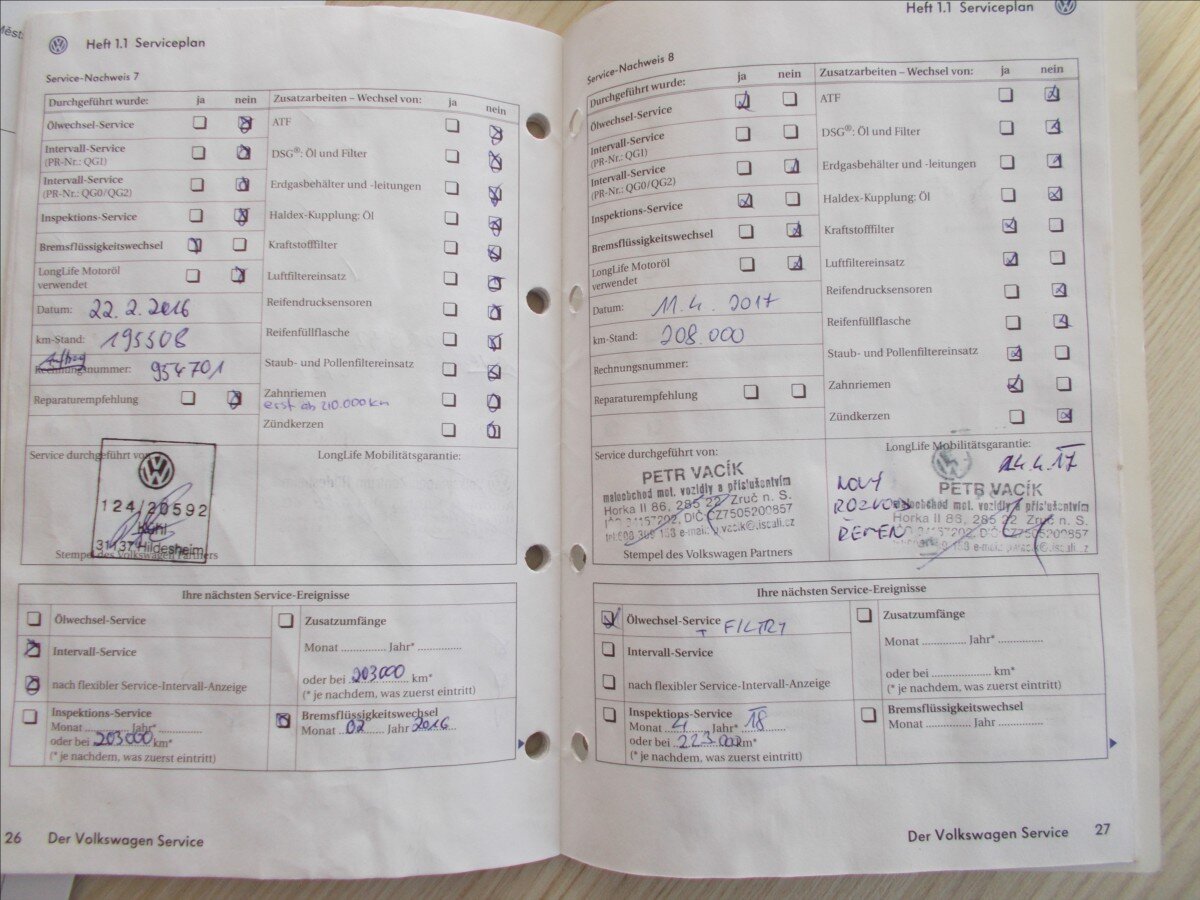 Měst
Heft 1.1 Serviceplan
Service-Nachweis 7
Durchgeführt wurde: ja nein
Ölwechsel-Service
Intervall-Service
(PR-Nr.: QG1)
Intervall-Service
(PR-Nr.: QG0/QG2)
Inspektions-Service
Bremsflüssigkeitswechsel
LongLife Motoröl
verwendet
Datum: 22.2.2016
km-Stand: 195508
Auftrag
Rechnungsnummer: 954701
Reparaturempfehlung
Zusatzarbeiten – Wechsel von: ja nein
ATF
DSG®: Öl und Filter
Erdgasbehälter und -leitungen
Haldex-Kupplung: Öl
Kraftstofffilter
Luftfiltereinsatz
Reifendrucksensoren
Reifenfüllflasche
Staub- und Pollenfiltereinsatz
Zahnriemen
erst ab 210.000km
Zündkerzen
Service durchgeführt von
124/20592
Kühl
31137 Hildesheim
Stempel des Volkswagen Partners
LongLife Mobilitätsgarantie:
Ihre nächsten Service-Ereignisse
Ölwechsel-Service
Intervall-Service
nach flexibler Service-Intervall-Anzeige
Inspektions-Service
Monat ............ Jahr* ............
oder bei 203000 km*
(* je nachdem, was zuerst eintritt)
Zusatzumfänge
Monat ............ Jahr* ............
oder bei 203000 km*
(* je nachdem, was zuerst eintritt)
Bremsflüssigkeitswechsel
Monat 02 Jahr 2016
26 Der Volkswagen Service
Heft 1.1 Serviceplan
Service-Nachweis 8
Durchgeführt wurde: ja nein
Ölwechsel-Service
Intervall-Service
(PR-Nr.: QG1)
Intervall-Service
(PR-Nr.: QG0/QG2)
Inspektions-Service
Bremsflüssigkeitswechsel
LongLife Motoröl
verwendet
Datum: 11.4.2017
km-Stand: 208.000
Rechnungsnummer:
Reparaturempfehlung
Zusatzarbeiten – Wechsel von: ja nein
ATF
DSG®: Öl und Filter
Erdgasbehälter und -leitungen
Haldex-Kupplung: Öl
Kraftstofffilter
Luftfiltereinsatz
Reifendrucksensoren
Reifenfüllflasche
Staub- und Pollenfiltereinsatz
Zahnriemen
Zündkerzen
Service durchgeführt von:
PETR VACÍK
maloobchod mot. vozidly a příslušentvím
Horka II 86, 285 22 Zruč n. S.
DIČ CZ7505200857
Stempel des Volkswagen Partners
LongLife Mobilitätsgarantie:
11.4.17
NOVÝ
ROZVOD
ŘEMEN
PETR VACÍK
maloobchod mot. vozidly a příslušentvím
Horka II 86, 285 22 Zruč n. S.
DIČ CZ7505200857
Ihre nächsten Service-Ereignisse
Ölwechsel-Service
+ FILTRY
Intervall-Service
nach flexibler Service-Intervall-Anzeige
Inspektions-Service
Monat 4 Jahr* 18
oder bei 223.000 km*
(* je nachdem, was zuerst eintritt)
Zusatzumfänge
Monat ............ Jahr* ............
oder bei ............ km*
(* je nachdem, was zuerst eintritt)
Bremsflüssigkeitswechsel
Monat ............ Jahr ............
Der Volkswagen Service 27